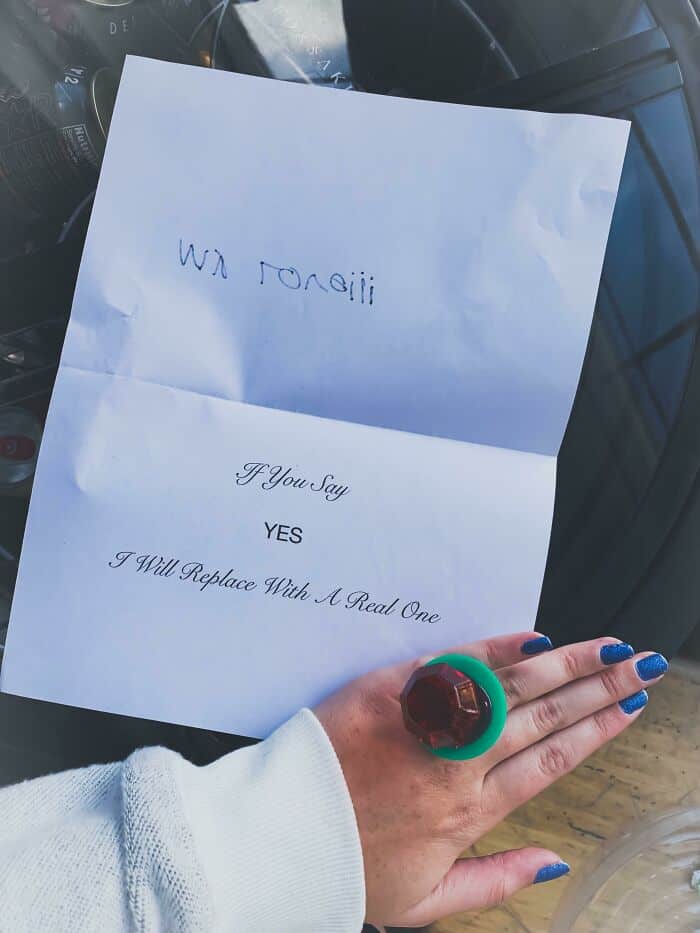 My Love!!!
If You Say
YES
I Will Replace With A Real One